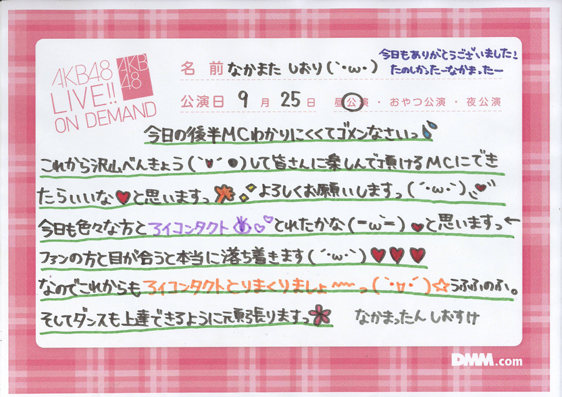 AKB48
LIVE!!
ON DEMAND
AKB
48
名 前 なかまた しおり(｀・ω・)
今日もありがとうございました!
たのしかったーなかまったー
公演日 9 月 25 日 昼公演・おやつ公演・夜公演
今日の後半MCわかりにくくてゴメンなさいっ
これから沢山べんきょう(｀・∀・´●)して皆さんに楽しんで頂けるMCにでき
たらいいな♥と思いますっ よろしくお願いしますっ(´・ω・｀)
今日も色々な方とアイコンタクト♡♡とれたかな(ーωー)♥と思いますっ←
ファンの方と目が合うと本当に落ち着きます(´・ω・｀)♥♥♥
なのでこれからもアイコンタクトとりまくりましょ〜〜っ(｀・ロ・´)☆うふふのふ。
そしてダンスも上達できるように頑張りますっ なかまったん しおすけ
DMM.com